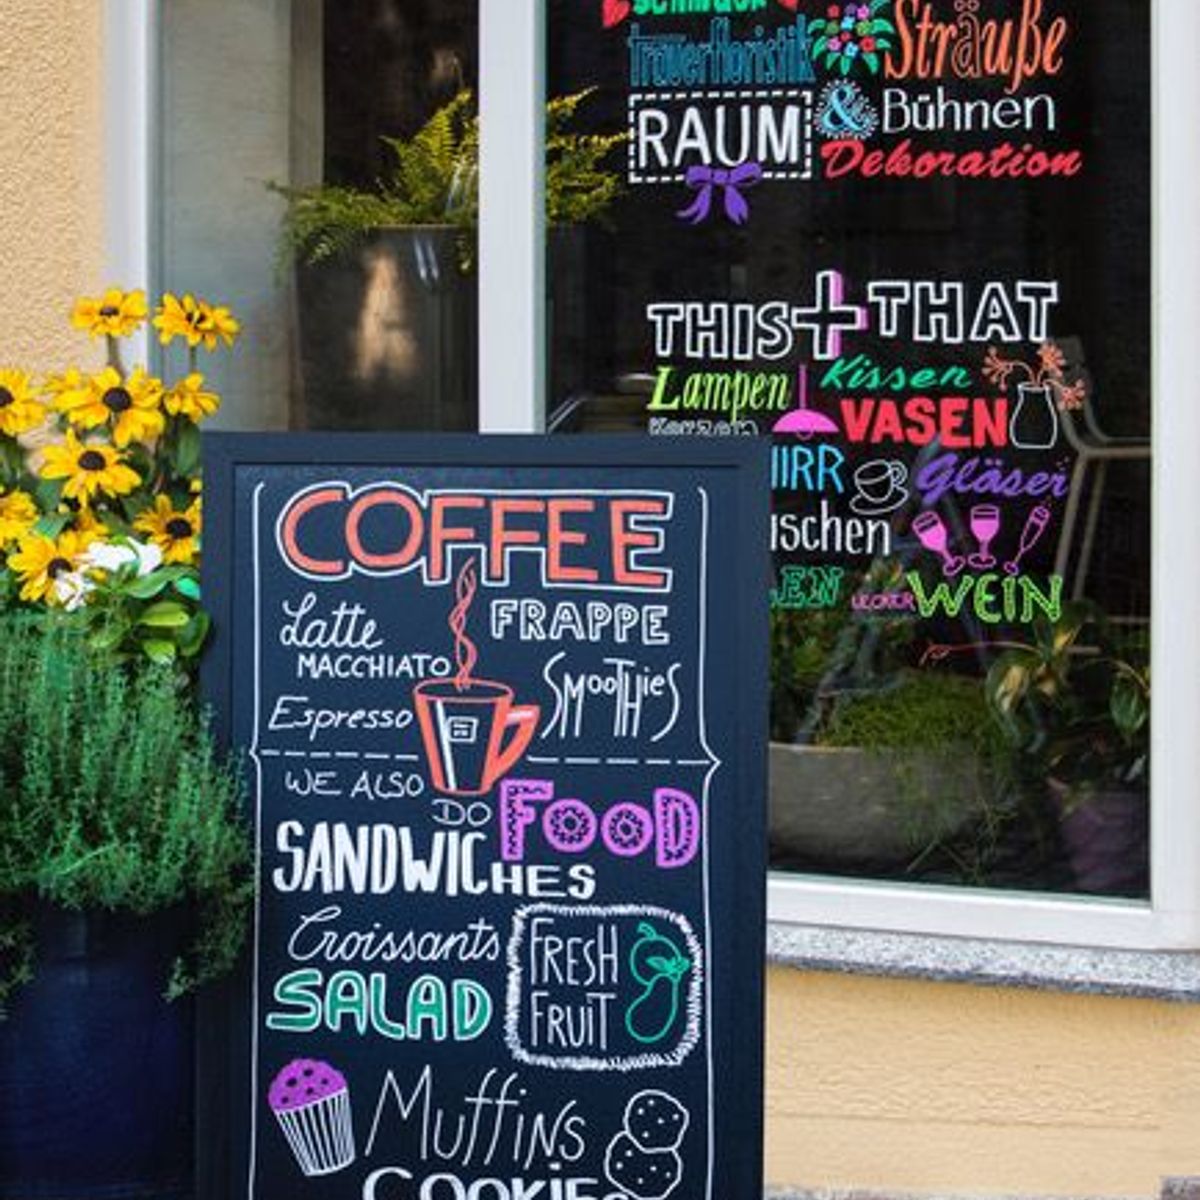 Trauerfloristik
Sträuße
RAUM
& Bühnen
Dekoration
THIS + THAT
Lampen
Kissen
Kerzen
VASEN
Gläser
LECKER
WEIN
COFFEE
Latte
MACCHIATO
FRAPPE
Espresso
SMOOTHIES
WE ALSO
DO
FOOD
SANDWICHES
Croissants
SALAD
FRESH
FRUIT
Muffins
COOKIES